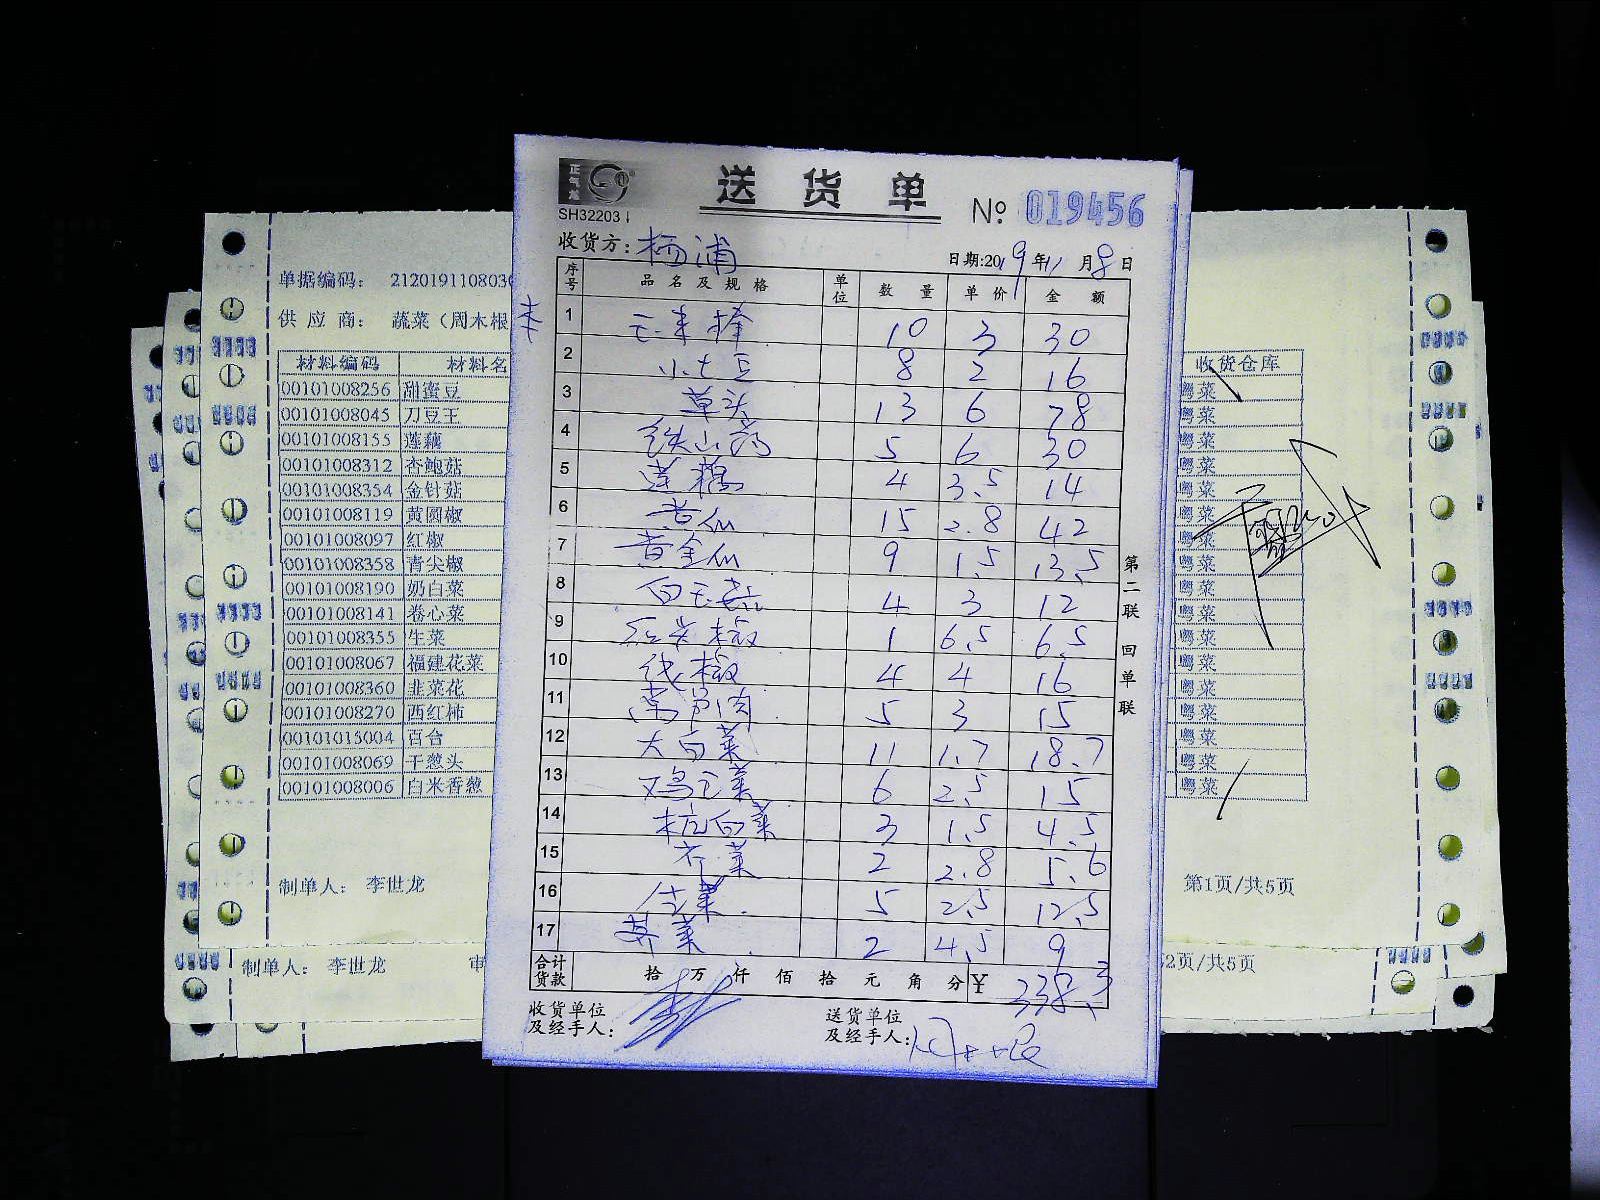 送货单
№ 019456
正气龙
SH32203
收货方:杨浦
日期:2019年11月8日
序号 品名及规格 单位 数量 单价 金额
1 玉米棒 10 3 30
2 小土豆 8 2 16
3 草头 13 6 78
4 铁山药 5 6 30
5 莲藕 4 3.5 14
6 黄瓜 15 2.8 42
7 黄金瓜 9 1.5 13.5
8 白玉菇 4 3 12
9 红尖椒 1 6.5 6.5
10 线椒 4 4 16
11 5 3 15
12 大白菜 11 1.7 18.7
13 鸡毛菜 6 2.5 15
14 杭白菜 3 1.5 4.5
15 芥菜 2 2.8 5.6
16 生菜 5 2.5 12.5
17 荠菜 2 4.5 9
合计货款 拾万仟佰拾元角分 ¥ 338.3
收货单位及经手人:
送货单位及经手人:周木根
第二联 回单联
单据编码: 212019110803
供应商: 蔬菜(周木根
材料编码 材料名
00101008256 甜蜜豆
00101008045 刀豆王
00101008155 莲藕
00101008312 杏鲍菇
00101008354 金针菇
00101008119 黄圆椒
00101008097 红椒
00101008358 青尖椒
00101008190 奶白菜
00101008141 卷心菜
00101008355 生菜
00101008067 福建花菜
00101008360 韭菜花
00101008270 西红柿
00101015004 百合
00101008069 干葱头
00101008006 白米香葱
制单人: 李世龙
制单人: 李世龙 审
收货仓库
粤菜
粤菜
粤菜
粤菜
粤菜
粤菜
粤菜
粤菜
粤菜
粤菜
粤菜
粤菜
粤菜
粤菜
粤菜
粤菜
粤菜
第1页/共5页
2页/共5页